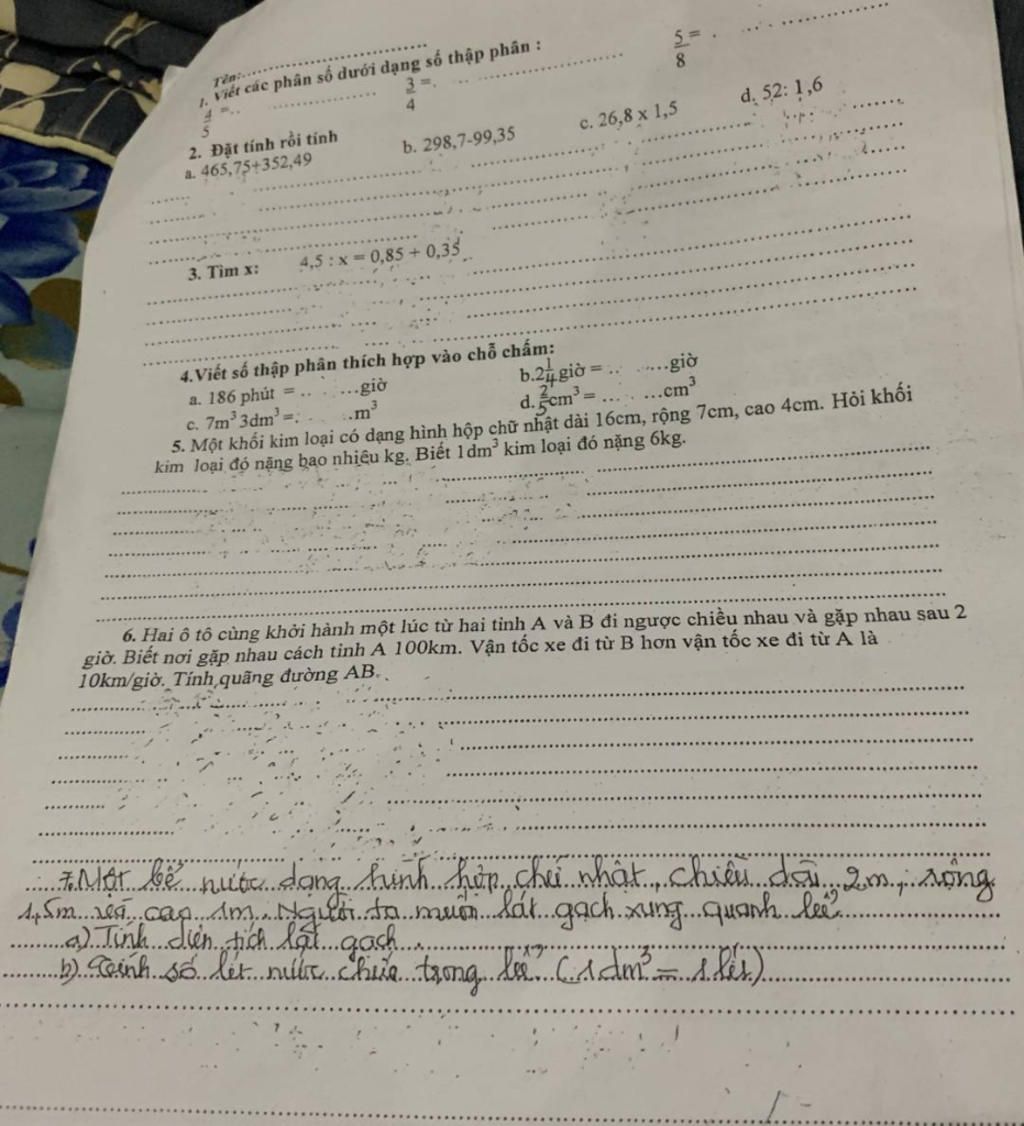 Tên:
1. Viết các phân số dưới dạng số thập phân :
4/5 = 3/4 = 5/8 =
2. Đặt tính rồi tính
a. 465,75+352,49 b. 298,7-99,35 c. 26,8 x 1,5 d. 52: 1,6
3. Tìm x: 4,5 : x = 0,85 + 0,35
4.Viết số thập phân thích hợp vào chỗ chấm:
a. 186 phút = .. ...giờ b.2 1/4 giờ = .. ....giờ
c. 7m³ 3dm³ =. .m³ d. 2/5 cm³ = ... ...cm³
5. Một khối kim loại có dạng hình hộp chữ nhật dài 16cm, rộng 7cm, cao 4cm. Hỏi khối
kim loại đó nặng bao nhiêu kg. Biết 1dm³ kim loại đó nặng 6kg.
6. Hai ô tô cùng khởi hành một lúc từ hai tỉnh A và B đi ngược chiều nhau và gặp nhau sau 2
giờ. Biết nơi gặp nhau cách tỉnh A 100km. Vận tốc xe đi từ B hơn vận tốc xe đi từ A là
10km/giờ. Tính quãng đường AB.
7. Một bể nước dạng hình hộp chữ nhật, chiều dài 2m, rộng
1,5m và cao 1m. Người ta muốn lát gạch xung quanh bể.
a) Tính diện tích lát gạch.
b) Tính số lít nước chứa trong bể? (1dm³ = 1 lít)